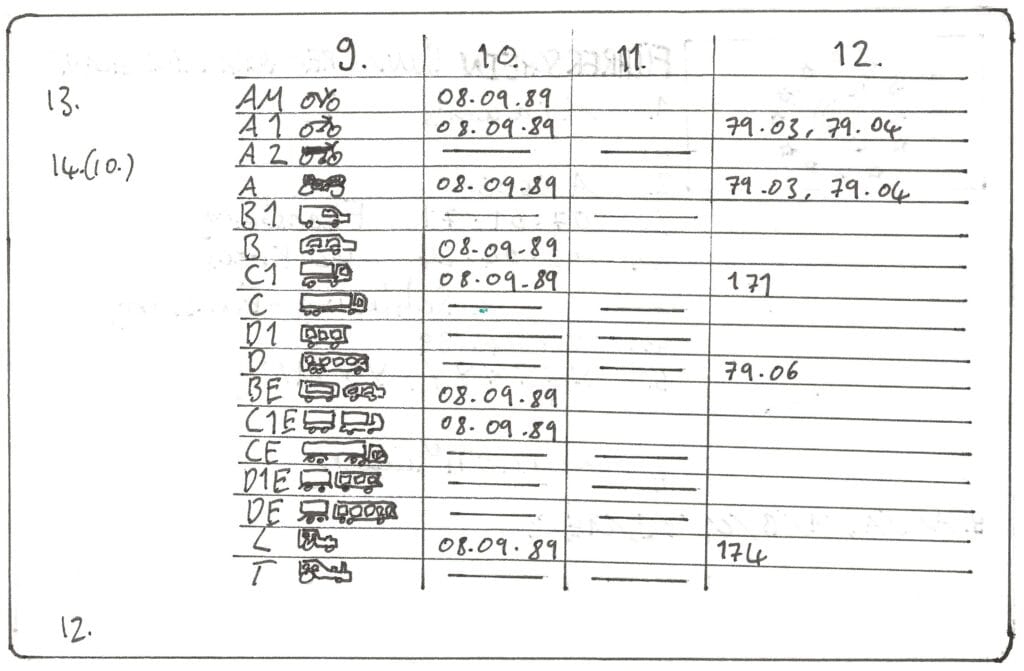 9. 10. 11. 12.
13.
AM 08.09.89
A1 08.09.89 79.03, 79.04
14.(10.)
A2
A 08.09.89 79.03, 79.04
B1
B 08.09.89
C1 08.09.89 171
C
D1
D 79.06
BE 08.09.89
C1E 08.09.89
CE
D1E
DE
L 08.09.89 174
T
12.